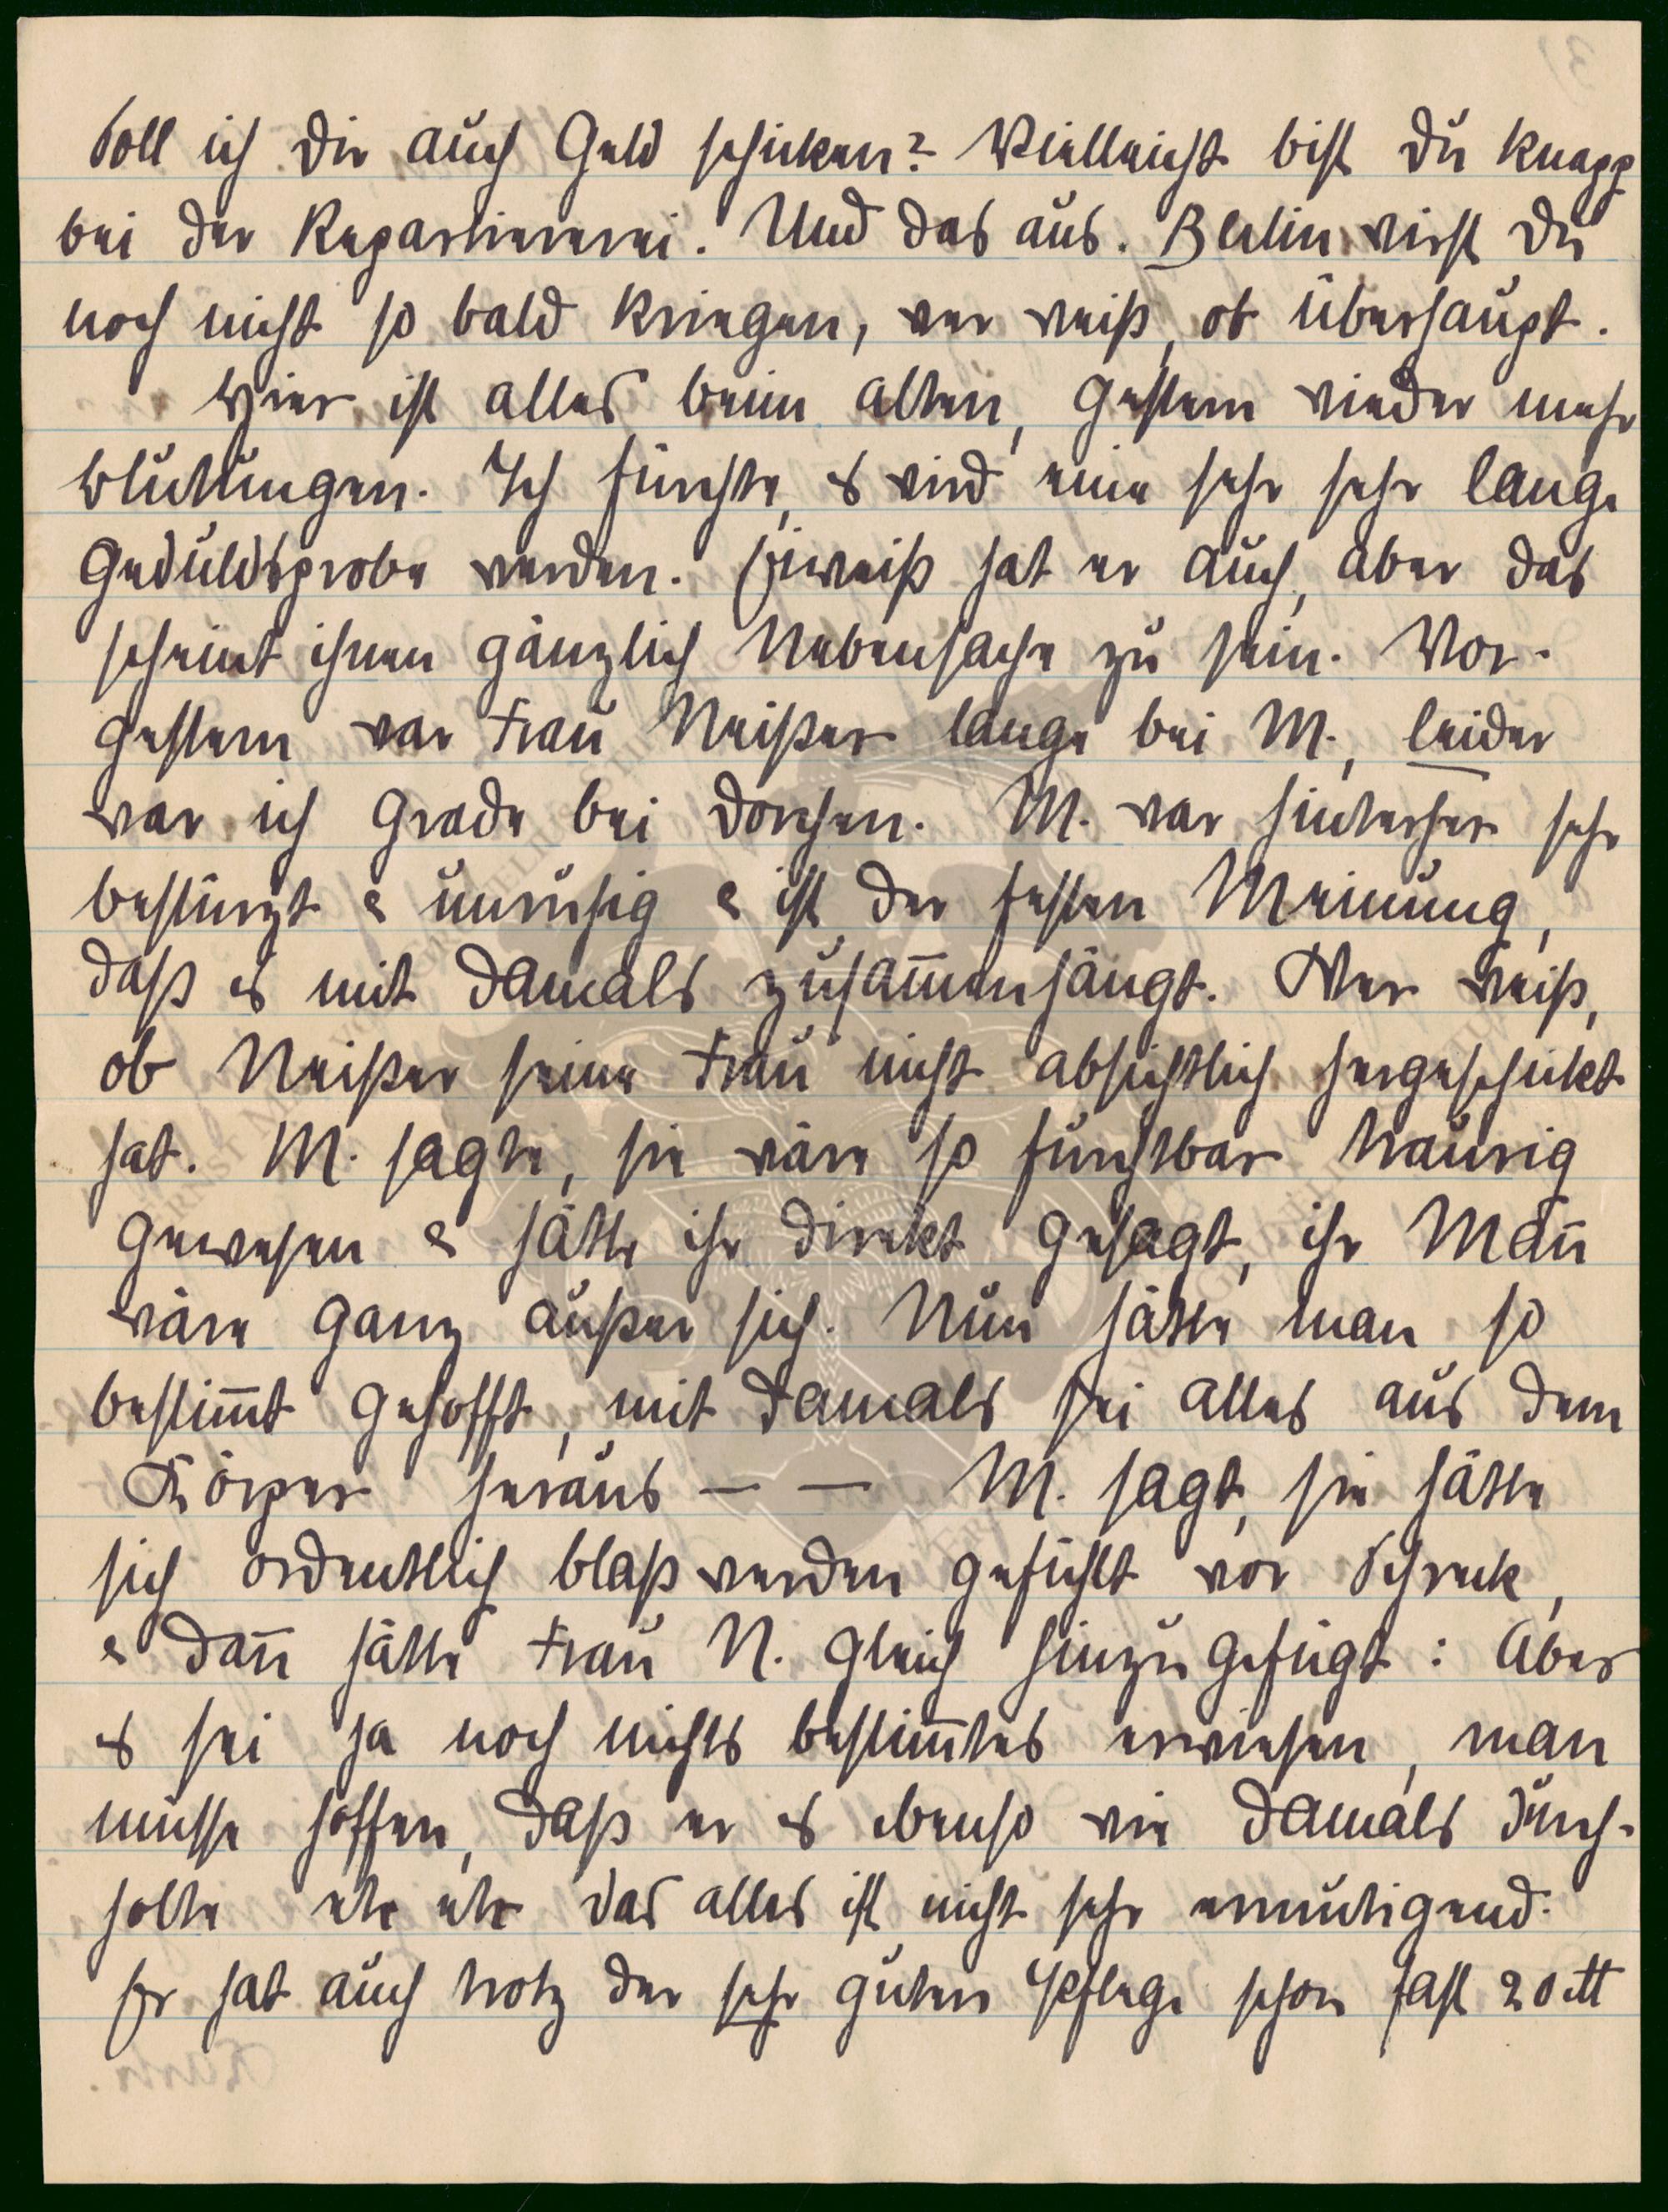 Soll ich Dir auch Geld schicken? Vielleicht bist Du knapp
bei der Repartiererei. Und das aus Berlin wirst Du
noch nicht so bald kriegen, wer weiß, ob überhaupt.
Hier ist alles beim alten, gestern wieder mehr
Blutungen. Ich fürchte, es wird eine sehr sehr lange
Geduldsprobe werden. Eiweiß hat er auch, aber das
scheint ihnen gänzlich Nebensache zu sein. Vor-
gestern war Frau Neißer lange bei M., leider
war ich grade bei Dorchen. M. war hinterher sehr
bestürzt & unruhig & ist der festen Meinung,
daß es mit damals zusam̅enhängt. Wer weiß,
ob Neißer seine Frau nicht absichtlich hergeschickt
hat. M. sagte, sie wäre so furchtbar traurig
gewesen & hätte ihr direkt gesagt, ihr Man̅
wäre ganz außer sich. Nun hätte man so
bestim̅t gehofft, mit damals sei alles aus dem
Körper heraus – – M. sagt, sie hätte
sich ordentlich blaß werden gefühlt vor Schreck,
& dan̅ hätte Frau N. gleich hinzugefügt: Aber
es sei ja noch nichts bestim̅tes erwiesen, man
müsse hoffen, daß er es ebenso wie damals durch-
holte etc etc das alles ist nicht sehr ermutigend.
Er hat auch trotz der sehr guten Pflege schon fast 20 ℔